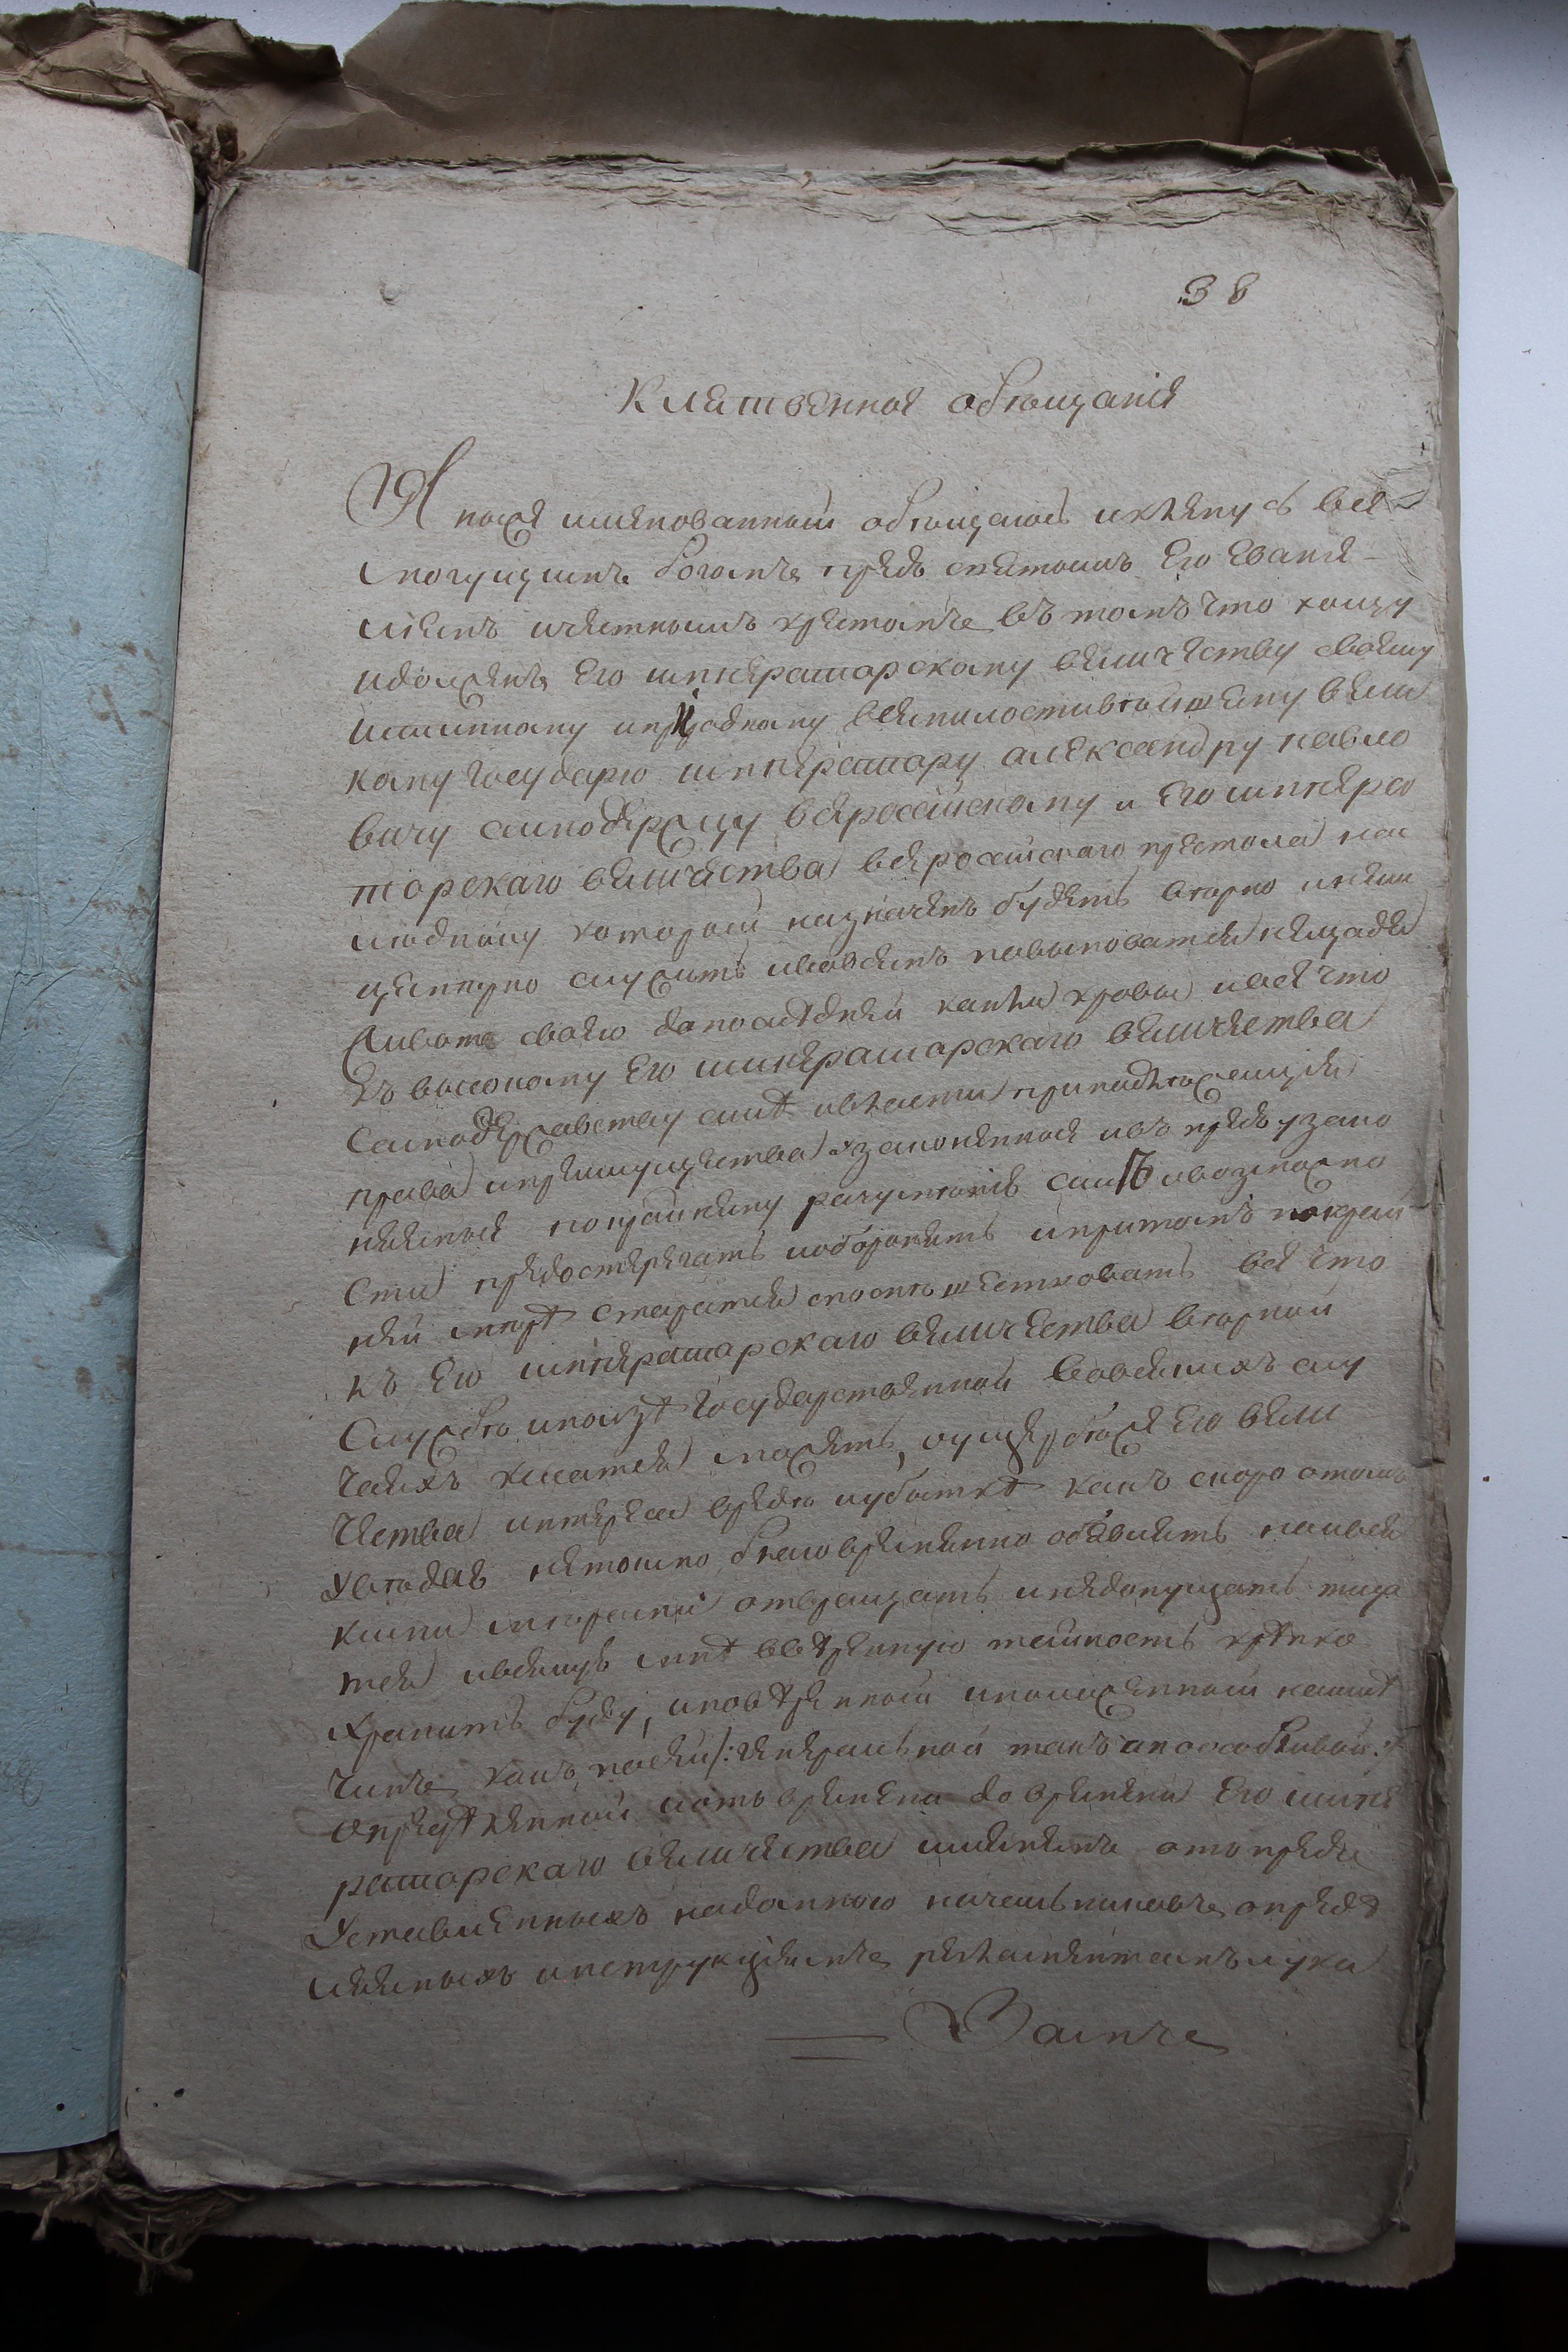 38
Клятвенное обѣщаніе
Я ниже имянованный обѣщаюсь и кленусь всe
могущимъ богомъ предъ святымъ Его Еванге
лiемъ и честнымъ крестомъ въ томъ что хощу
и долженъ Его императорскому величеству своему
истинному и природному всемилостивѣйшему вели
кому Государю императору александру павло
вичу самодержцу всеросійскому и Его импера
торскаго величества всеросийскаго престола на
следнику которой назначенъ будетъ вѣрно и нели
цемерно служить и вовсемъ повиноватся нещадя
живота своего до последней капли крови и все что
къ высокому Его императорскаго величества
самодержавству силе и власти принадлежащия
права и преимущества узаконенныя и въ предь узако
няемыя покрайнему разумению силѣ и возможно
сти предостерегать и оборонять и притомъ покрай
ней мере старатся споспѣшествовать все что
къ Его императорскаго величества верной
службе и ползе Государственной вовсякихъ слу
чаяхъ касатся можетъ, о ущербеже Его вели
чества интереса вреде и убытке какъ скоро о томъ
уведаю нетокмо благовременно объявлять но и вся
кими мерами отвращать и недопущать тща
тся и всякую мне вверенную тайность крепко
хранить буду, и поверенной и положенной на мне
чинъ какъ посей /: генеральной такъ и по особливой :/
определенной и отъ времени до времени Его импе
раторскаго величества имянемъ отъ предъ
уставленныхъ надомною начальниковъ опреде
ляемыхъ инструкциямъ регламентамъ и ука
замъ